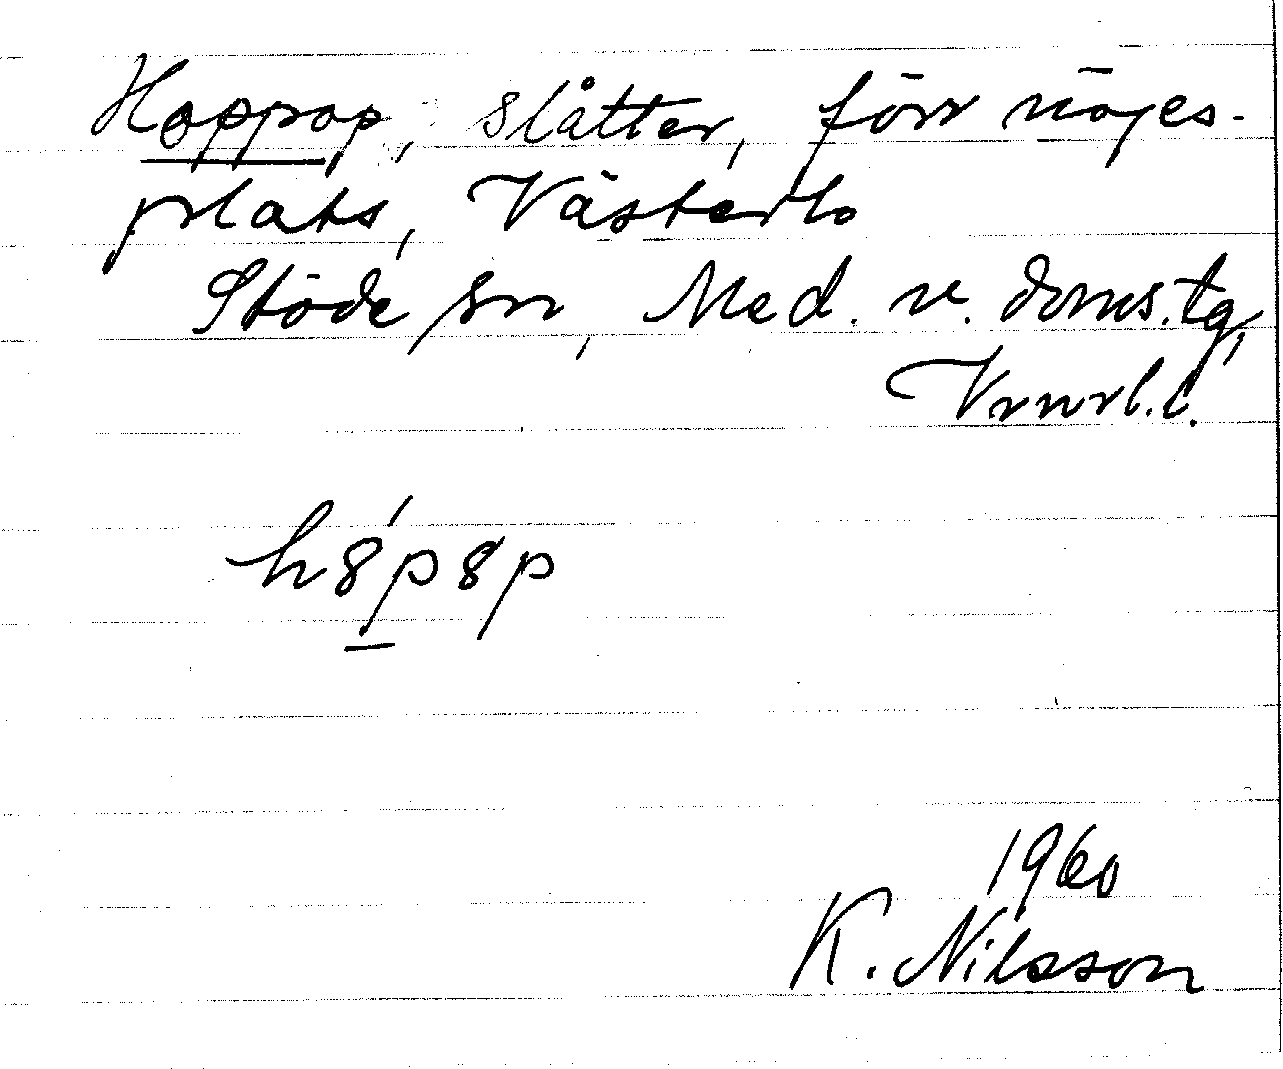 Hoppop, slåtter, förr nöjes-
plats, Västerlo
Stöde sn, Med. v. doms.tg,
Vrnrl.l.
h8́p8p
1960
K. Nilsson